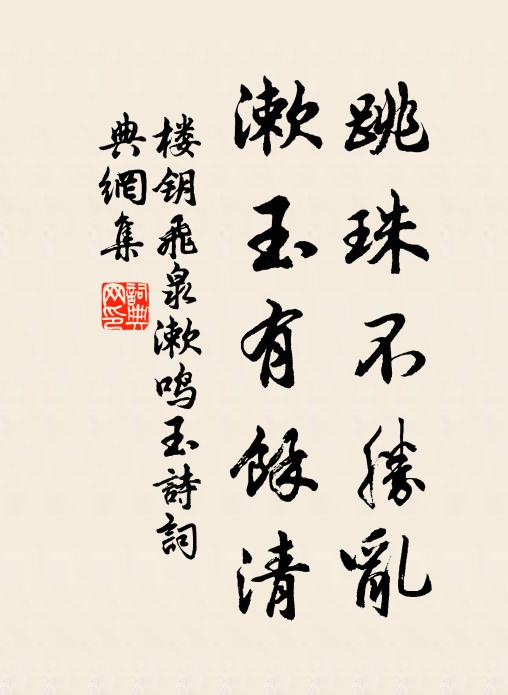 跳珠不勝亂
漱玉有餘清
楼钥飛泉漱鸣玉詩詞
典網集
詞典网印